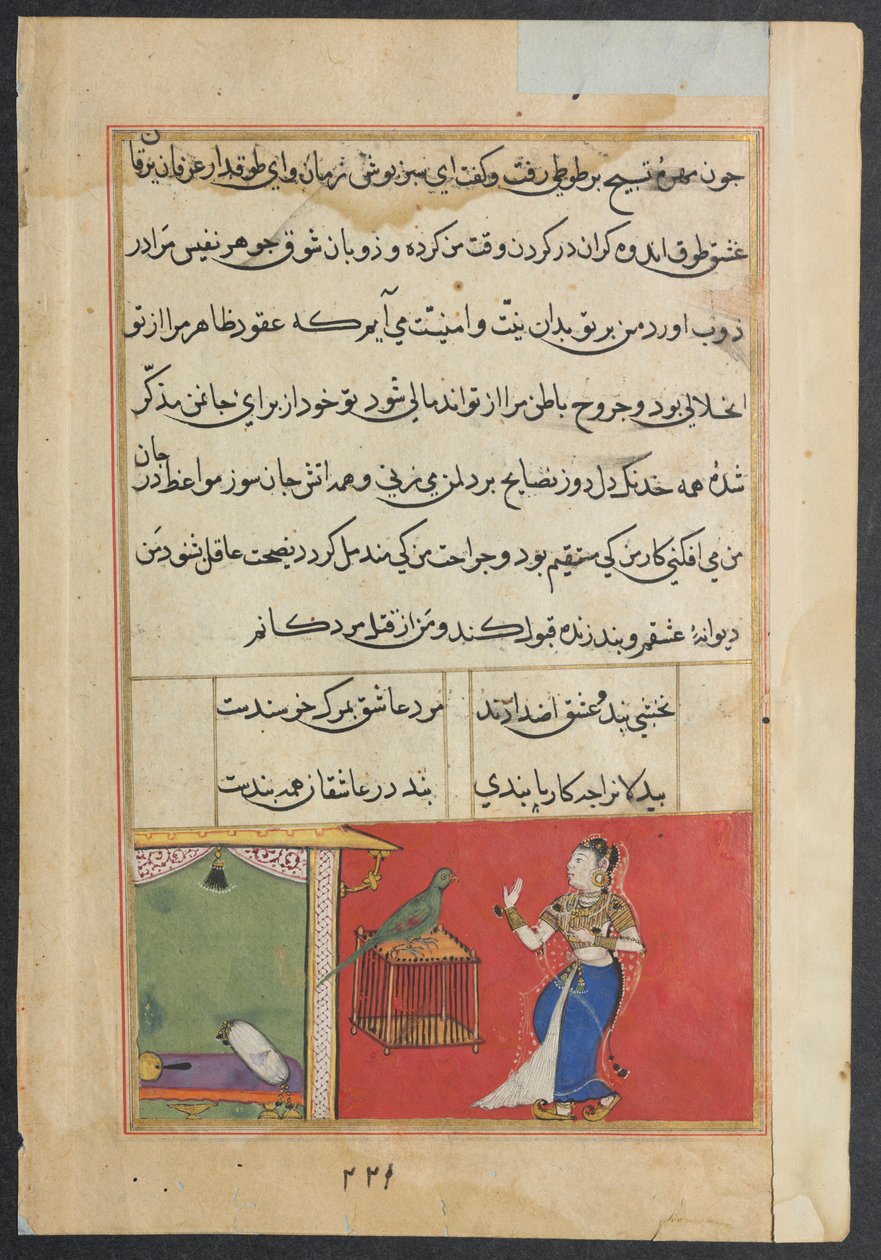 جون مهرهٔ تسبیح بر طوطی رفت و کفت ای سبز پوش زمان و ای طوقدار عرفان یرقان
عشق طوق اندوه کران در کردن وقت من کرده و ذوبان شوق جوهر نفیس مرا در
ذوب اورد من بر تو بدان نیّت و امنیّت می آیم که عقود ظاهر مرا از تو
انحلالی بود و جروح باطن مرا از تو اندمالی شود تو خود از برای جاغن مذکّر
شدهٔ همه خدنک دل دوز نصایح بر دل من می زنی و همه اتش جان سوز مواعظ در جان
من می افکنی کار من کی مستقیم بود و جراحت من کی مندمل کردد نصحت عاقل شنود من
دیوانهٔ عشقم و بند زنده قبول کند و من از قبل مردکانم
نخشبی بند و عشق اضدادند مرد عاشق بمرک خرسندست
بیدلانرا جه کار با بندی بند در عاشقان همه بندست
۲۲۶